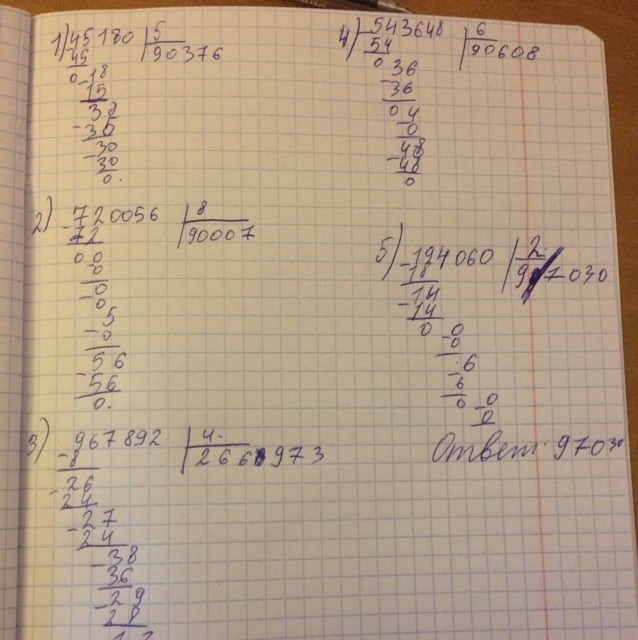 1) 45180 | 5
45 | 90376
0 18
15
38
- 35
- 30
30
0.
2) - 720056 | 8
72 | 90007
00
0
- 0
0
- 5
0
56
- 56
0.
3) - 967892 | 4.
8 | 266 973
- 26
24
- 27
24
- 38
36
- 29
28
4) - 543648 | 6
54 | 90608
0 36
- 36
0 4
- 0
48
- 48
0
5) - 194060 | 2.
18 | 9 7030
- 14
14
0 0
- 0
6
- 6
0 0
0
Ответ: 97030